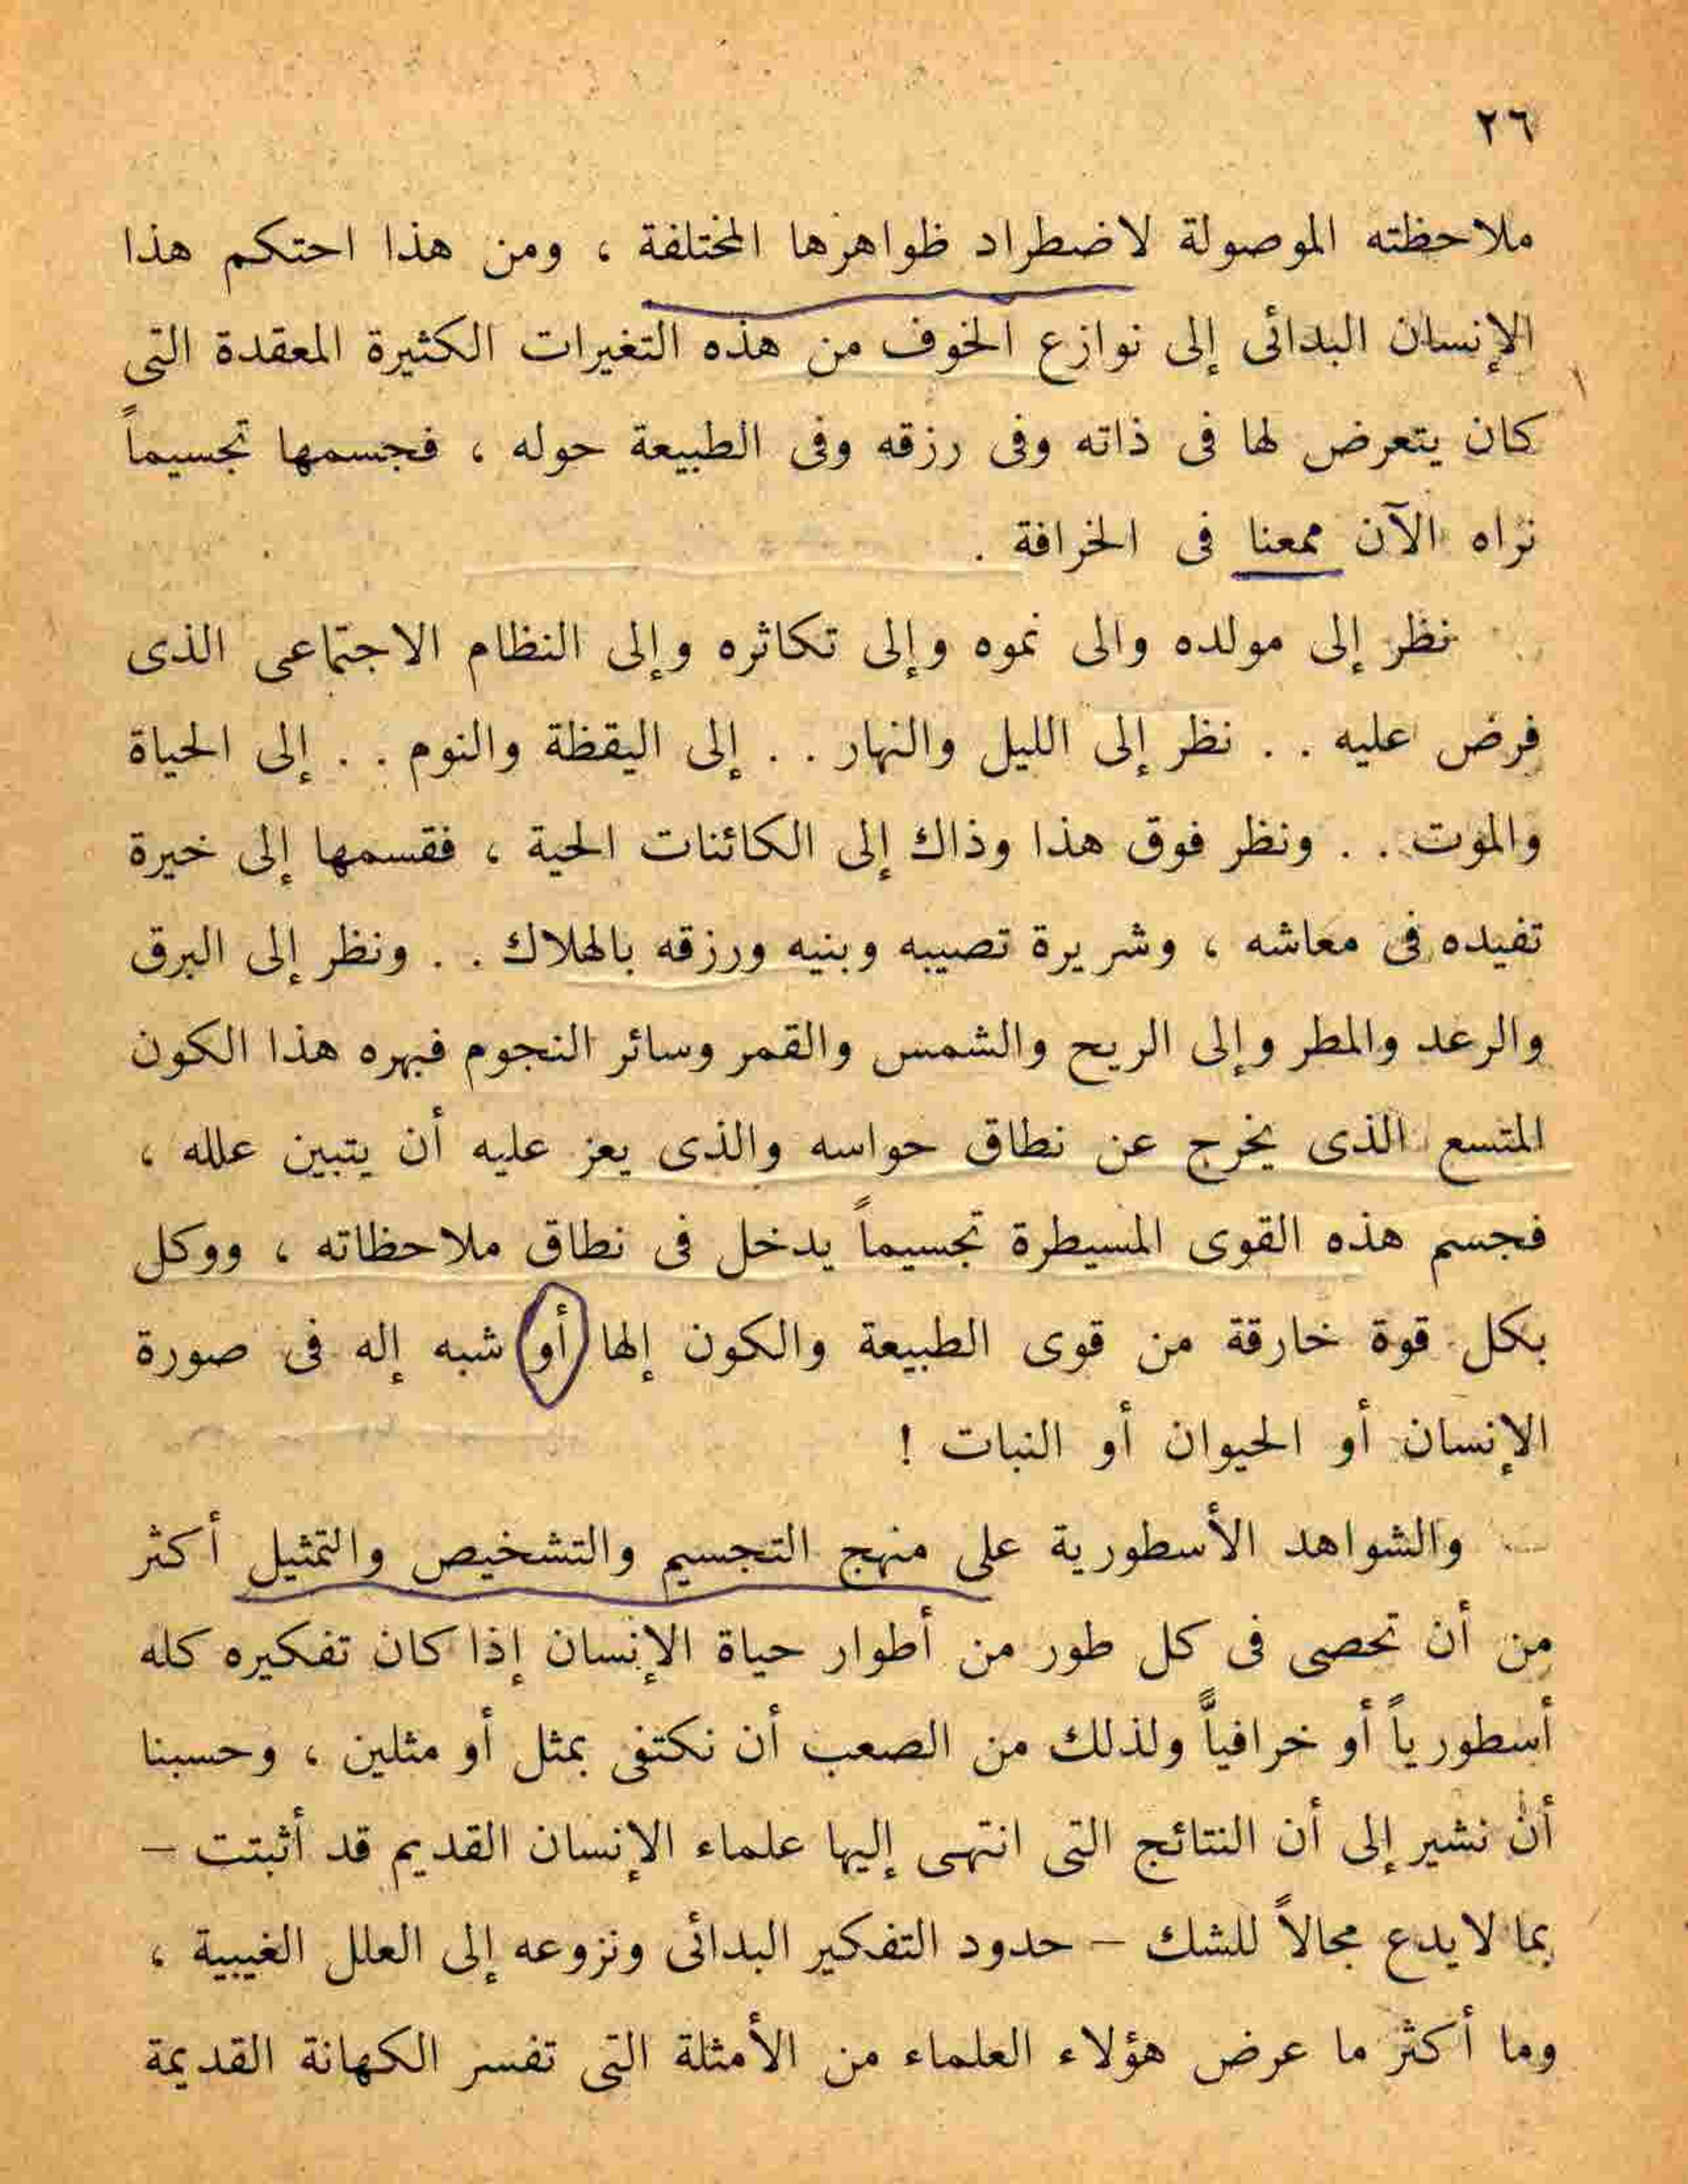 ٢٦
ملاحظته الموصولة لاضطراد ظواهرها المختلفة ، ومن هذا احتكم هذا
الإنسان البدائى إلى نوازع الخوف من هذه التغيرات الكثيرة المعقدة التى
كان يتعرض لها فى ذاته وفى رزقه وفى الطبيعة حوله ، فجسمها تجسيماً
نراه الآن ممعنا فى الخرافة .
نظر إلى مولده والى نموه وإلى تكاثره وإلى النظام الاجتماعى الذى
فرض عليه . . نظر إلى الليل والنهار . . إلى اليقظة والنوم . . إلى الحياة
والموت . . ونظر فوق هذا وذاك إلى الكائنات الحية ، فقسمها إلى خيرة
تفيده فى معاشه ، وشريرة تصيبه وبنيه ورزقه بالهلاك . . ونظر إلى البرق
والرعد والمطر وإلى الريح والشمس والقمر وسائر النجوم فبهره هذا الكون
المتسع الذى يخرج عن نطاق حواسه والذى يعز عليه أن يتبين علله ،
فجسم هذه القوى المسيطرة تجسيماً يدخل فى نطاق ملاحظاته ، ووكل
بكل قوة خارقة من قوى الطبيعة والكون إلها أو شبه إله فى صورة
الإنسان أو الحيوان أو النبات !
والشواهد الأسطورية على منهج التجسيم والتشخيص والتمثيل أكثر
من أن تحصى فى كل طور من أطوار حياة الإنسان إذا كان تفكيره كله
أسطورياً أو خرافياً ولذلك من الصعب أن نكتفى بمثل أو مثلين ، وحسبنا
أن نشير إلى أن النتائج التى انتهى إليها علماء الإنسان القديم قد أثبتت –
بما لايدع مجالاً للشك – حدود التفكير البدائى ونزوعه إلى العلل الغيبية ،
وما أكثر ما عرض هؤلاء العلماء من الأمثلة التى تفسر الكهانة القديمة